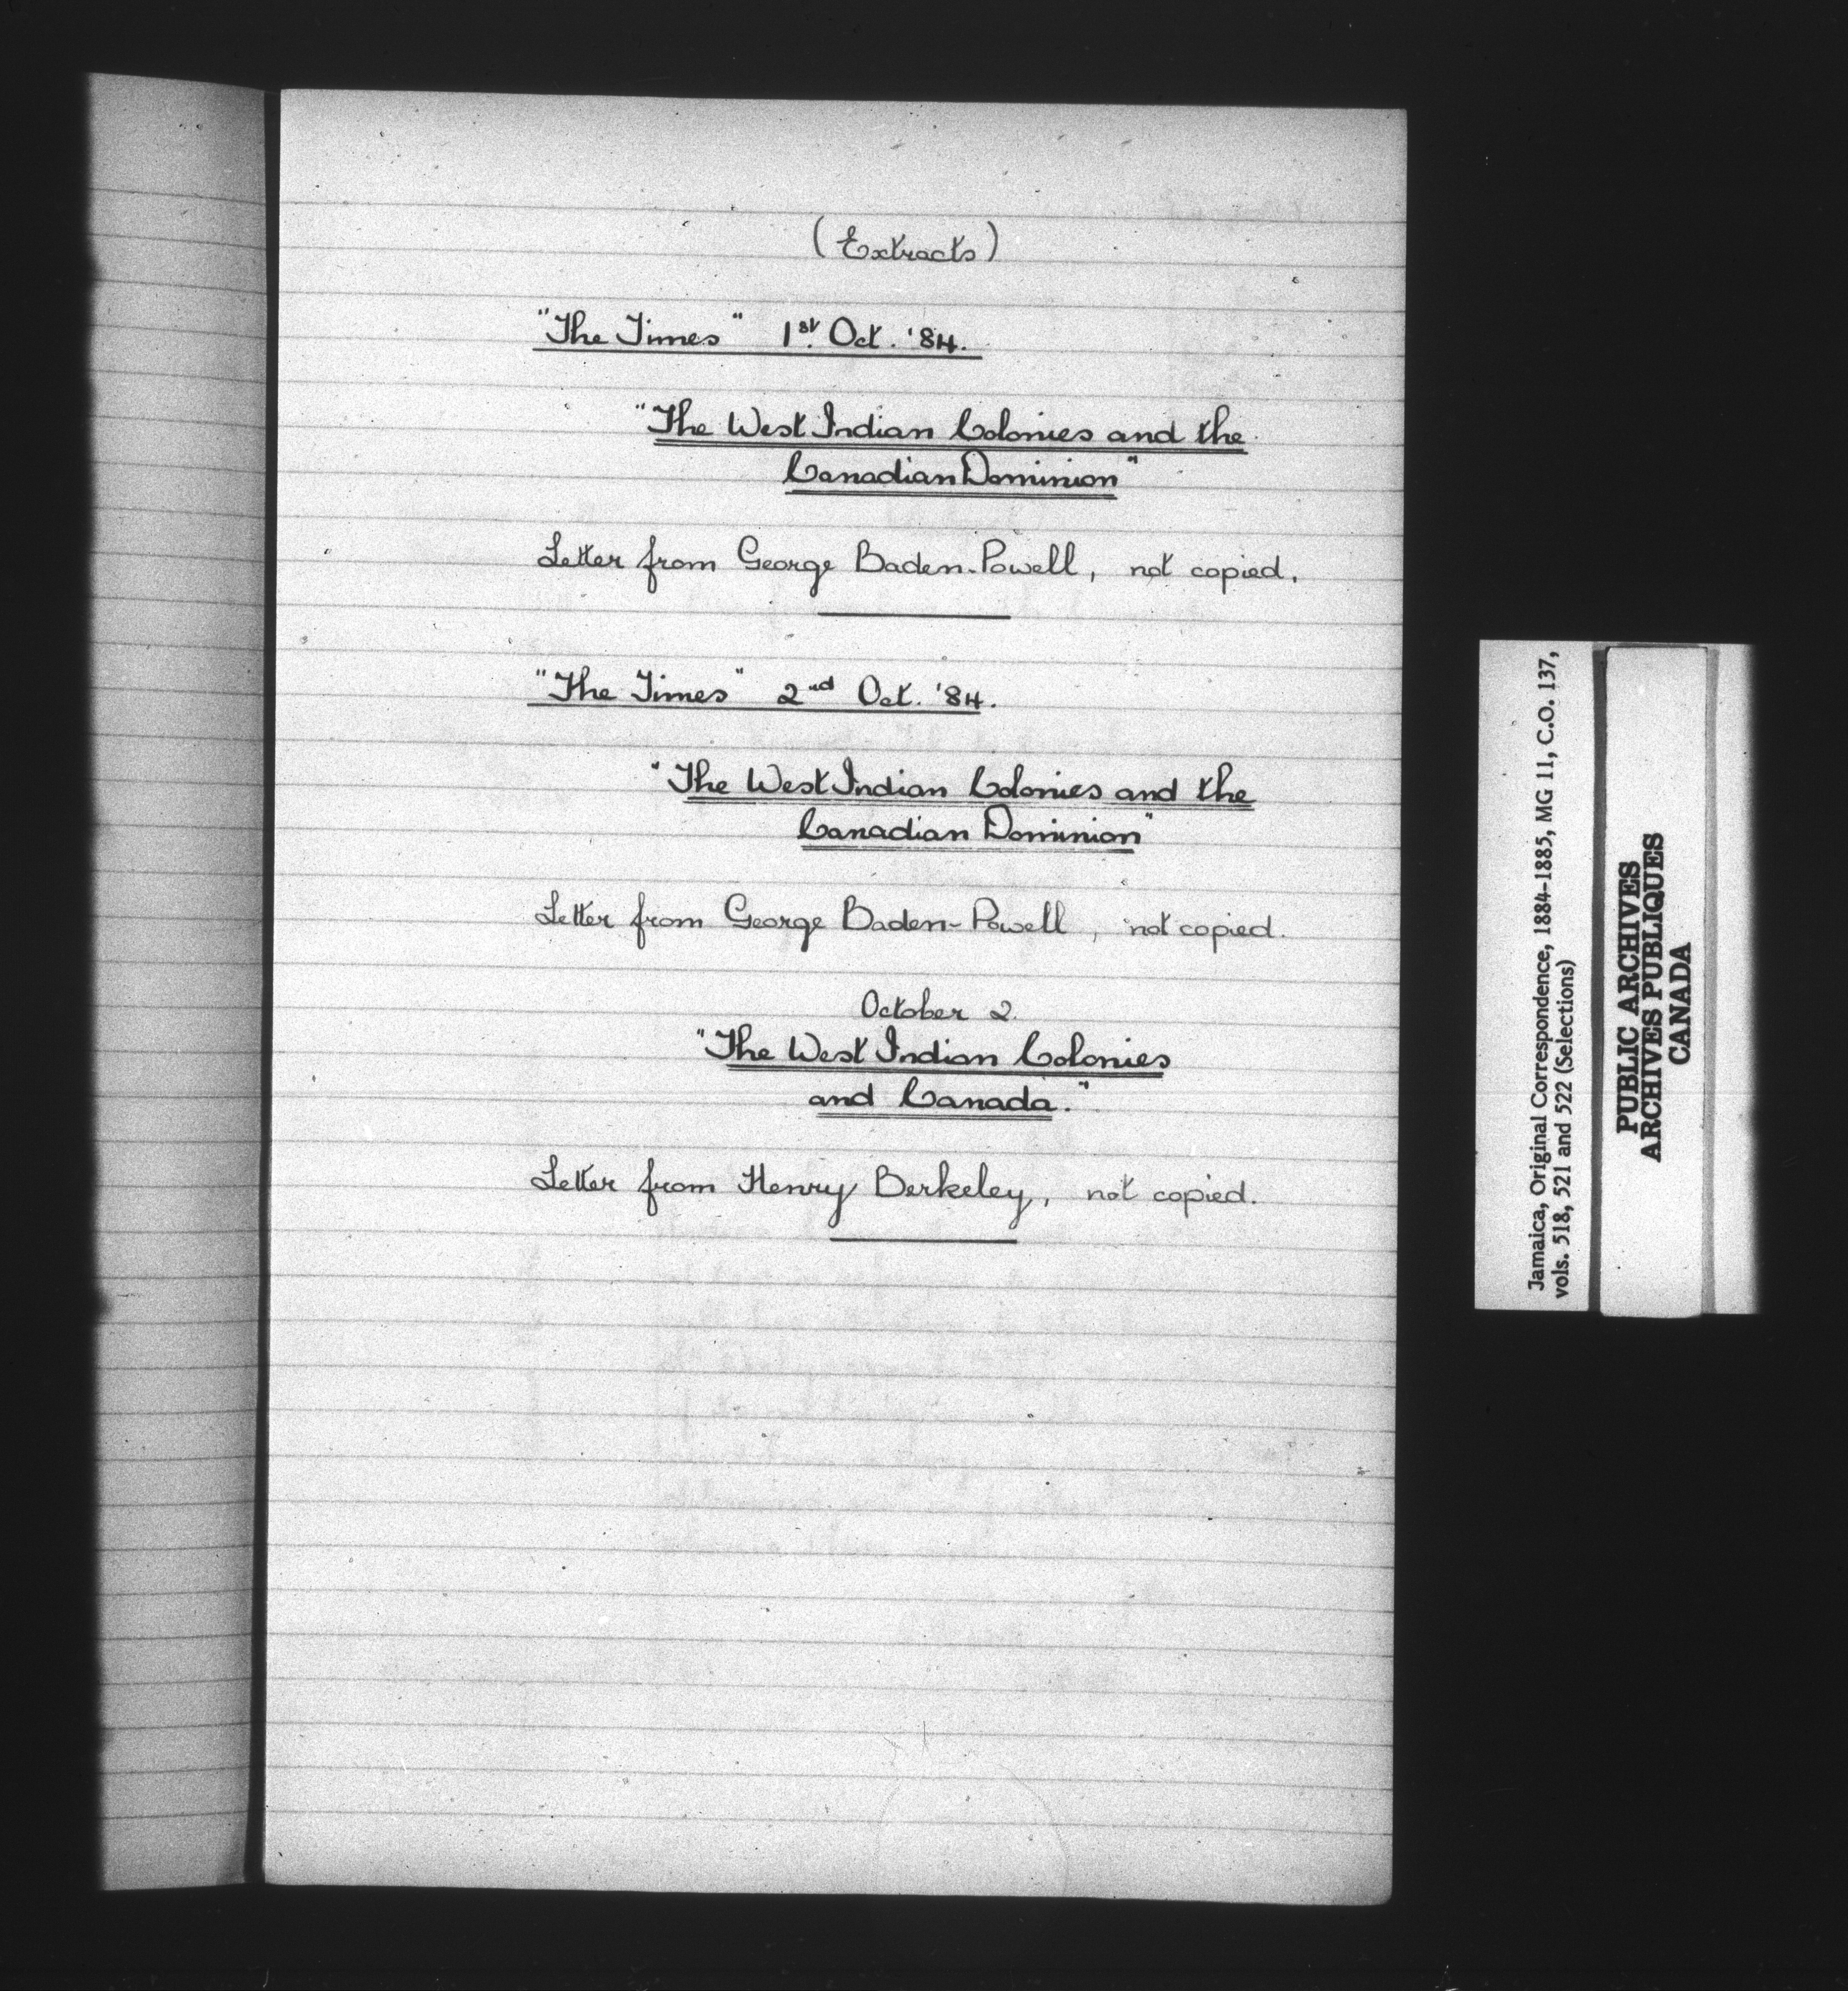 (Extracts)
"The Times" 1st. Oct. '84.
"The West Indian Colonies and the
Canadian Dominion"
Letter from George Baden-Powell, not copied.
"The Times" 2nd Oct. '84.
"The West Indian Colonies and the
Canadian Dominion"
Letter from George Baden-Powell, not copied.
October 2.
"The West Indian Colonies
and Canada."
Letter from Henry Berkeley, not copied.
Jamaica, Original Correspondence, 1884-1885, MG 11, C.O. 137,
vols. 518, 521 and 522 (Selections)
PUBLIC ARCHIVES
ARCHIVES PUBLIQUES
CANADA